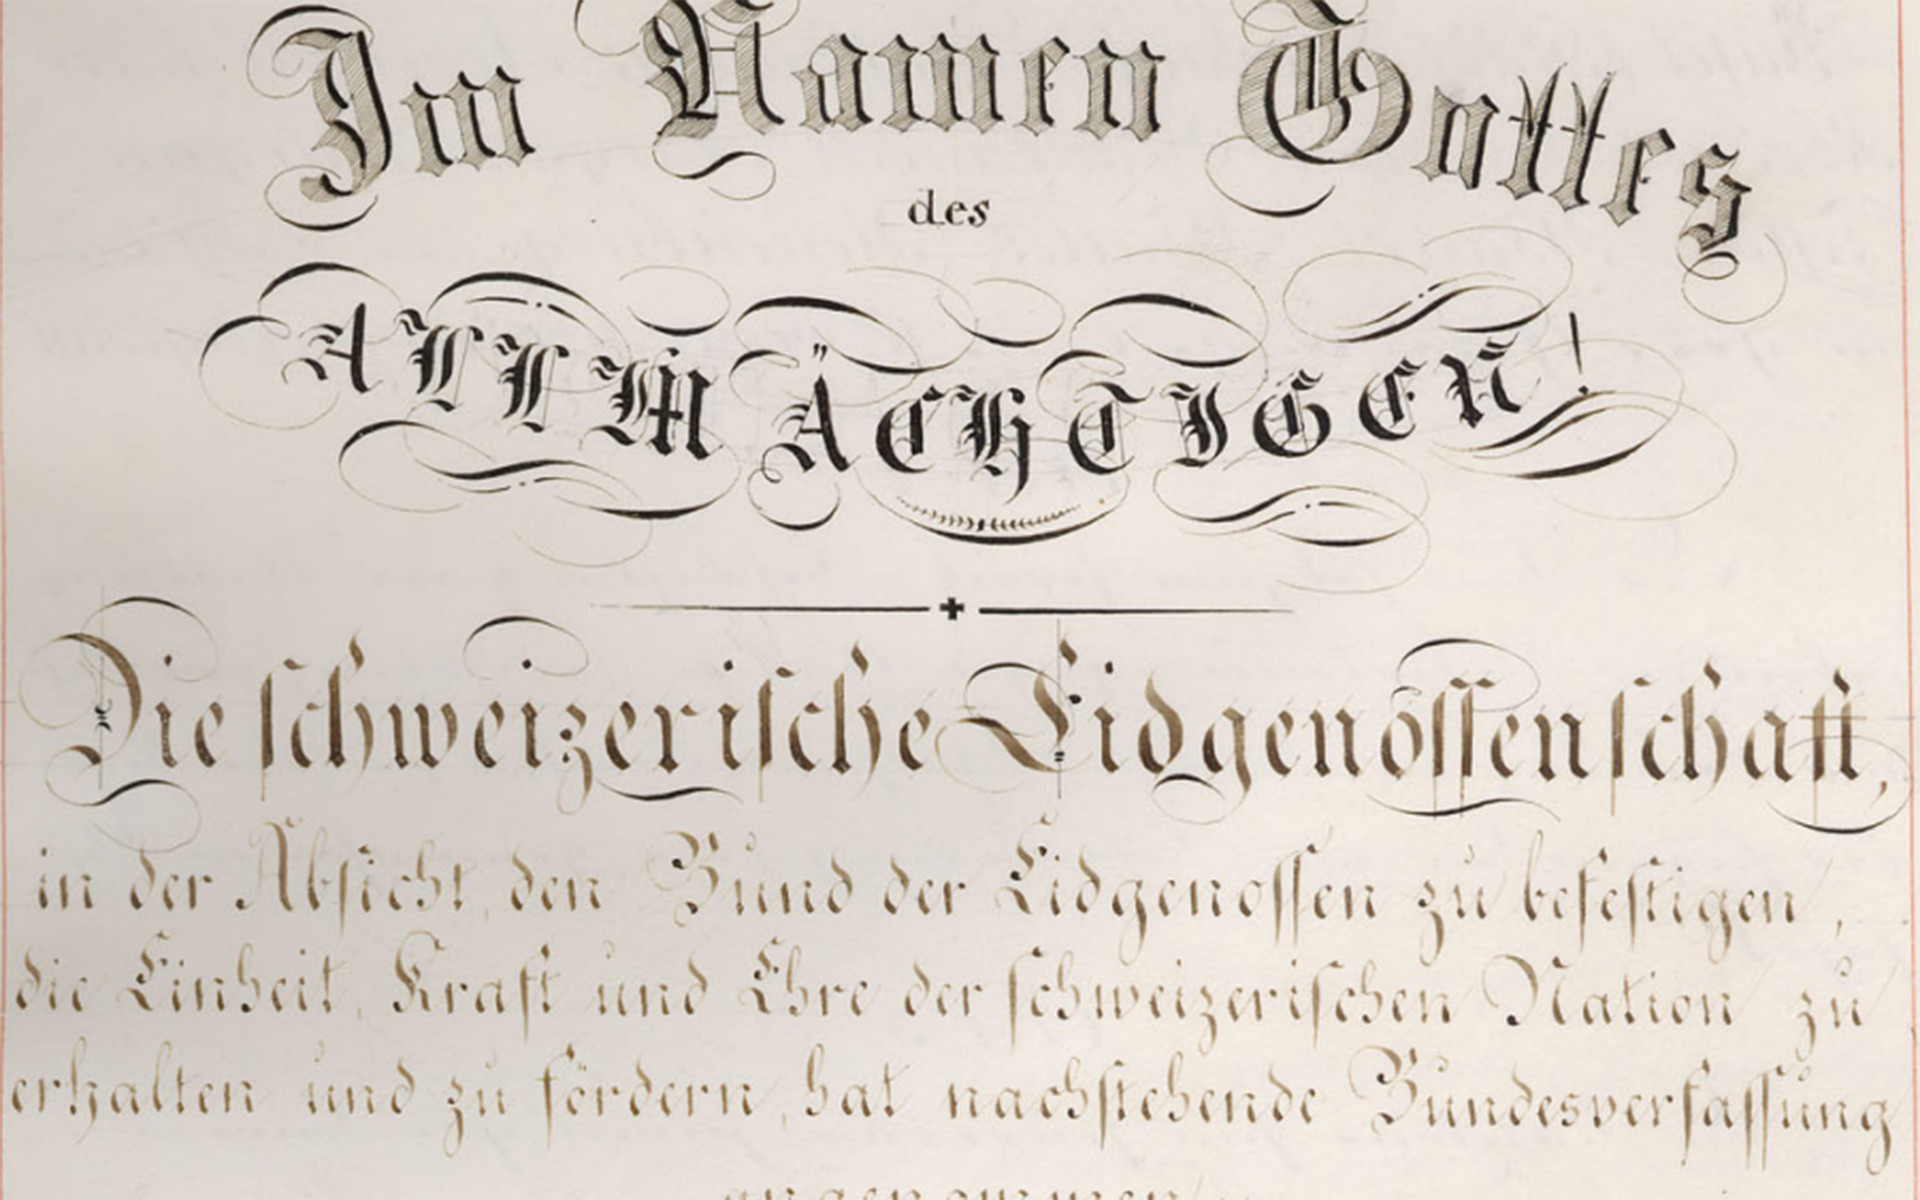 Im Namen Gottes
des
ALLMÄCHTIGEN!
Die schweizerische Eidgenossenschaft,
in der Absicht, den Bund der Eidgenossen zu befestigen,
die Einheit, Kraft und Ehre der schweizerischen Nation zu
erhalten und zu fördern, hat nachstehende Bundesverfassung
angenommen: